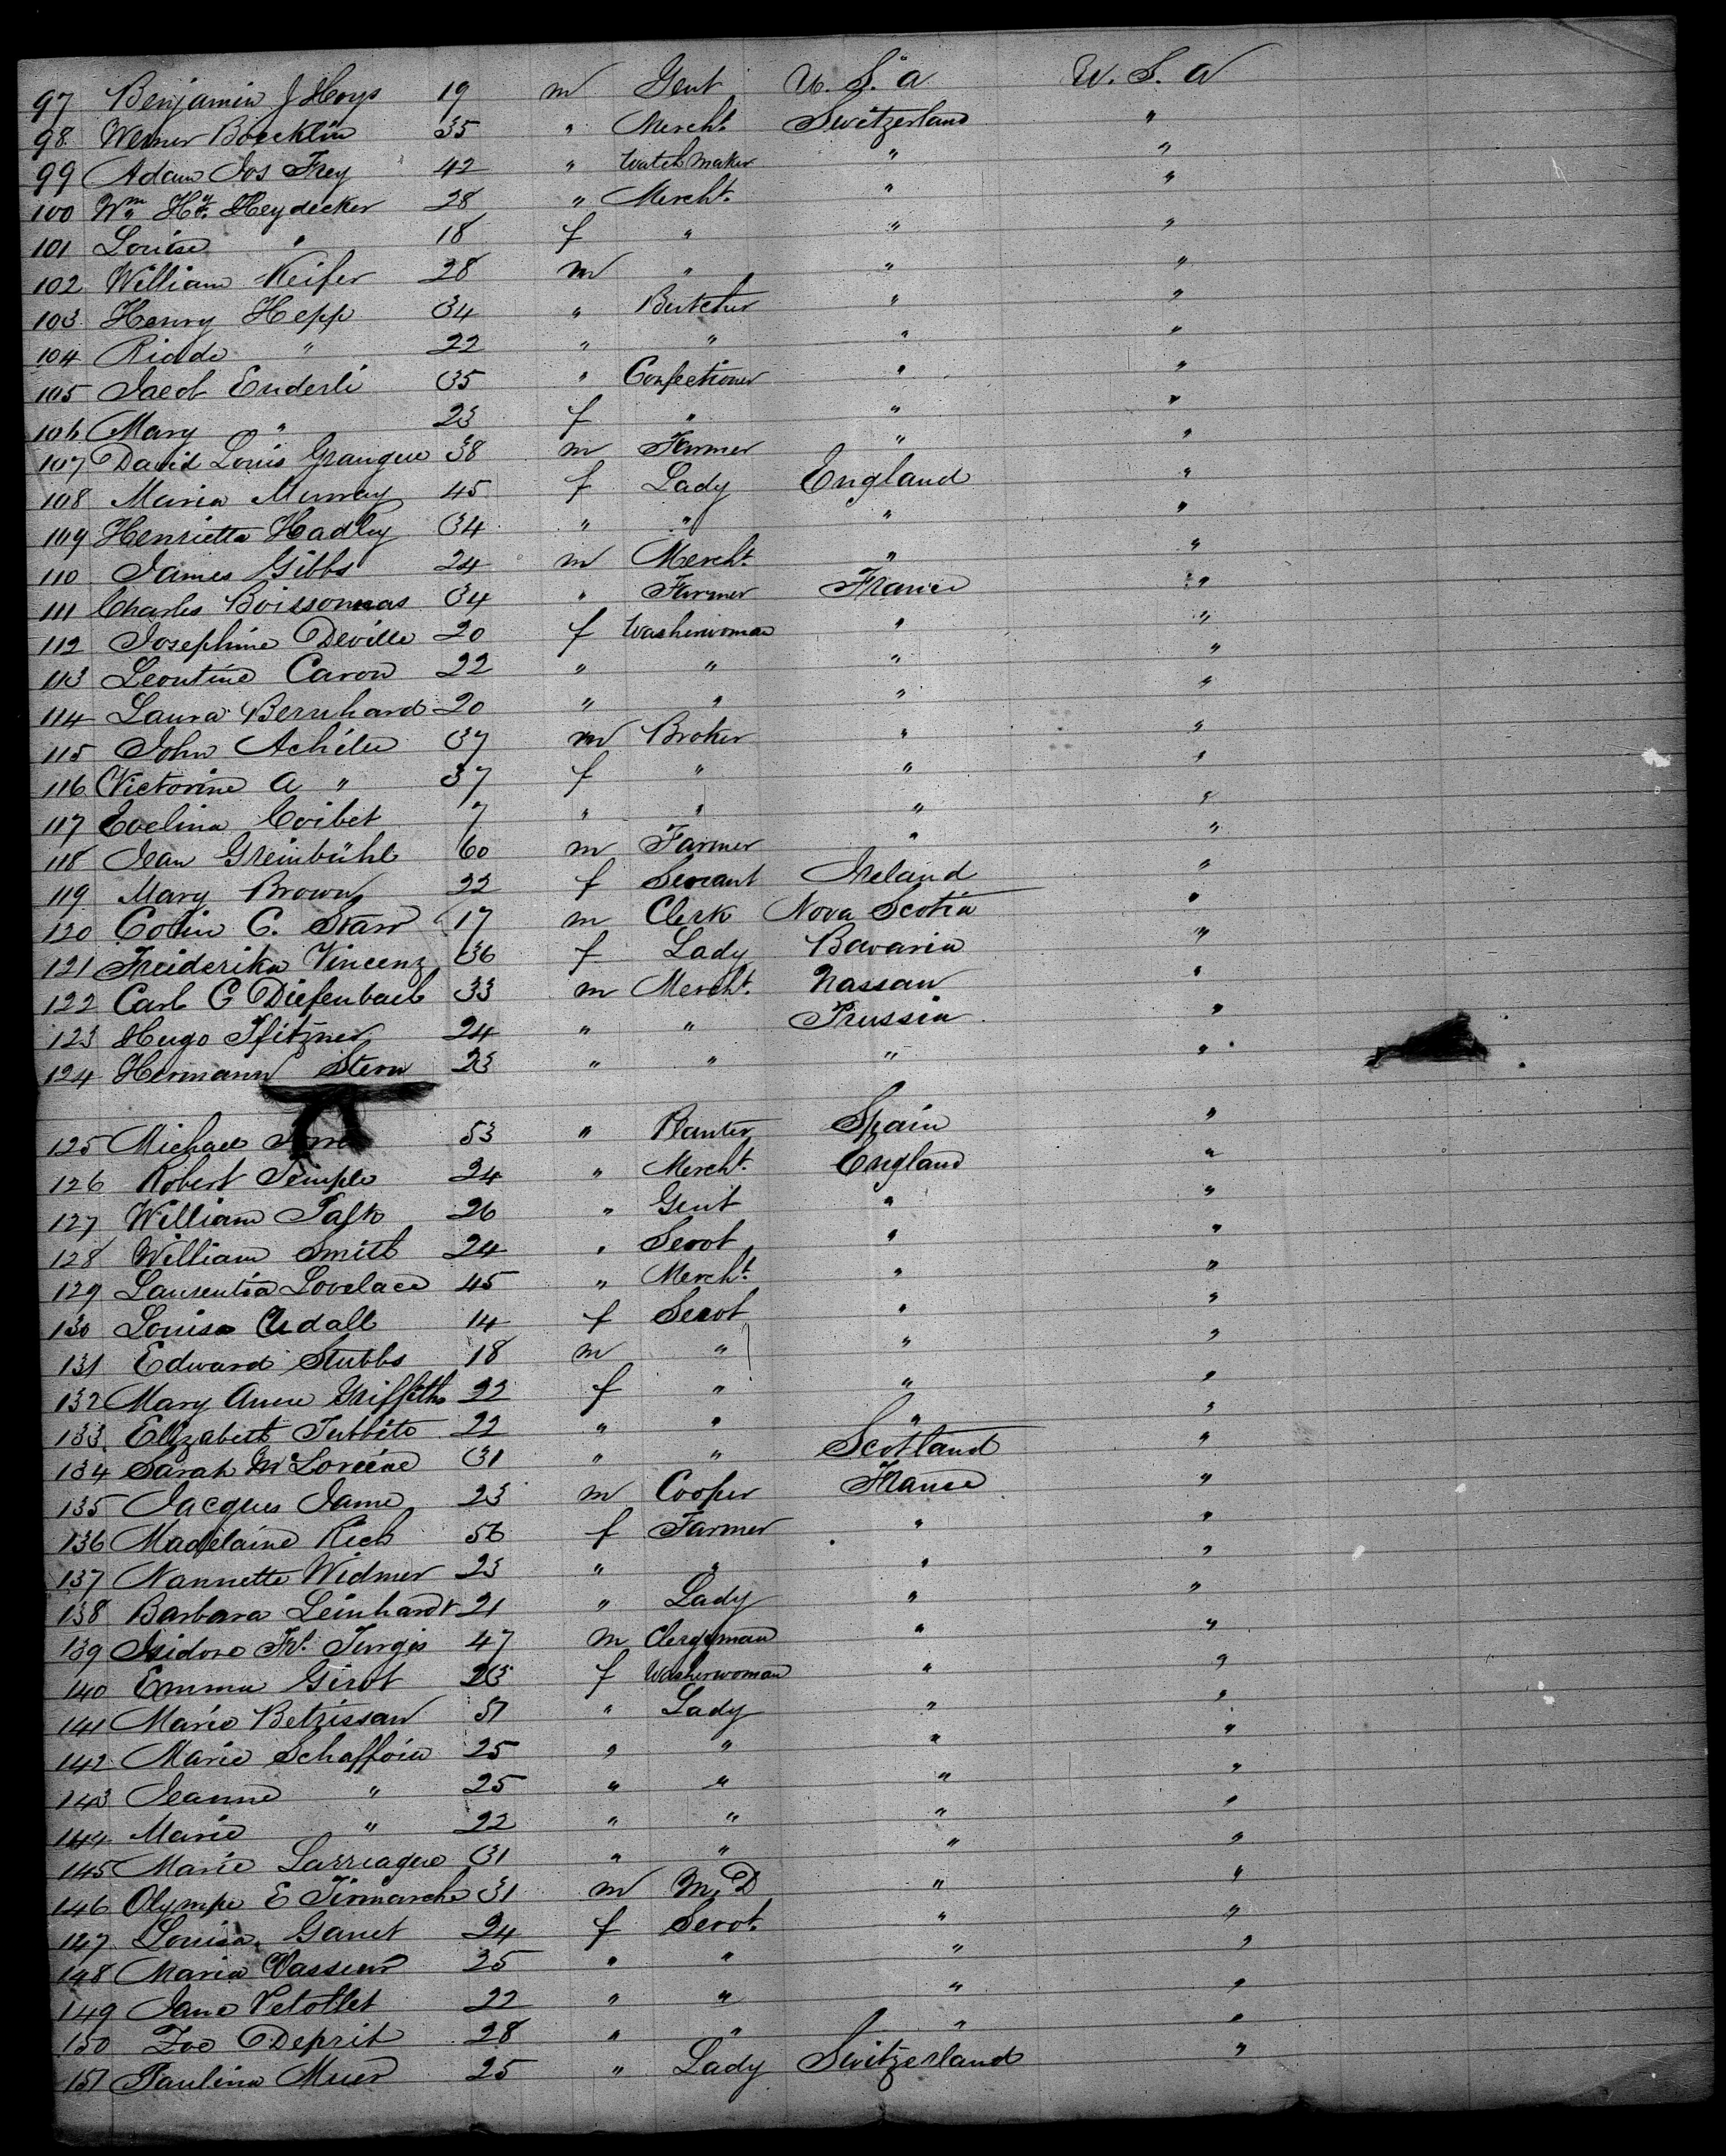 97 Benjamin J Hoys 19 m Gent U. S. a U. S. a
98 Werner Boecklin 35 " Mercht. Switzerland "
99 Adam Jos Frey 42 " Watch maker " "
100 Wm Hy. Heydecker 28 " Mercht. " "
101 Louise " 18 f " " "
102 William Keifer 28 m " " "
103 Henry Hepp 34 " Butcher " "
104 " 22 " " " "
105 Jacob Enderli 35 " Confectioner " "
106 Mary " 23 f " " "
107 David Louis 38 m Farmer " "
108 Maria Murray 45 f Lady England "
109 Henrietta Hadley 34 " " " "
110 James Gibbs 24 m Mercht. " "
111 Charles Boissonnas 34 " Farmer France "
112 Josephine Deville 20 f Washerwoman " "
113 Leontine Caron 22 " " " "
114 Laura Bernhard 20 " " " "
115 John 37 m Broker " "
116 Victorine A " 37 f " " "
117 Evelina Coibet 7 " " " "
118 Jean Greinbühl 60 m Farmer " "
119 Mary Brown 22 f Servant Ireland "
120 Colin C. Starr 17 m Clerk Nova Scotia "
121 Freiderika Vincenz 36 f Lady Bavaria "
122 Carl C Diefenbach 33 m Mercht. Nassau "
123 Hugo Pfitzner 24 " " Prussia "
124 Hermann Stern 23 " " " "
125 Michael 53 " Planter Spain "
126 Robert Semple 24 " Mercht. England "
127 William 26 " Gent " "
128 William Smith 24 " Servt " "
129 Laurentia Lovelace 45 " Mercht. " "
130 Louisa Udall 14 f Servt " "
131 Edward Stubbs 18 m " " "
132 Mary Anne Griffiths 22 f " " "
133 Elizabeth Tubbits 22 " " " "
134 Sarah 31 " " Scotland "
135 Jacques Jame 23 m Cooper France "
136 Madelaine Rich 56 f Farmer " "
137 Nannette Widmer 23 " " " "
138 Barbara Leinhardt 21 " Lady " "
139 Isidore Turgis 47 m Clergyman " "
140 Emma Girot 23 f Washerwoman " "
141 Marie 51 " Lady " "
142 Marie Schaffoin 25 " " " "
143 Jeanne " 25 " " " "
144 Marie " 22 " " " "
145 Marie Larriague 31 " " " "
146 Olympe E 31 m M. D " "
147 Louisa Ganet 24 f Servt. " "
148 Maria Vasseur 25 " " " "
149 Jane 22 " " " "
150 Zoe Deprit 28 " " " "
151 Paulina 25 " Lady Switzerland "